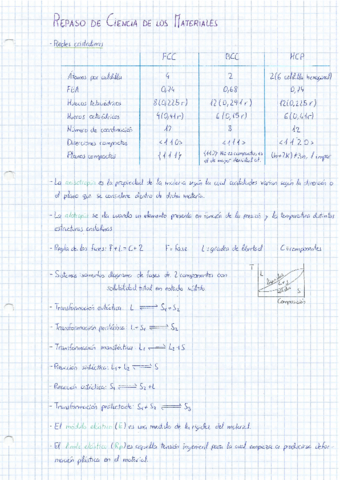 REPASO DE CIENCIA DE LOS MATERIALES
- Redes cristalinas
FCC BCC HCP
Átomos por celdilla 4 2 2 (6 celdilla hexagonal)
FEA 0,74 0,68 0,74
Huecos tetraédricos 8 (0,225r) 12 (0,291r) 12 (0,225r)
Huecos octaédricos 4 (0,41r) 6 (0,15r) 6 (0,41r)
Número de coordinación 12 8 12
Direcciones compactas <110> <111> <1120>
Planos compactos {111} {110} No es compacto, es el de mayor densidad at.
- La anisotropía es la propiedad de la materia según la cual cualidades varían según la dirección o
el plano que se considere dentro de dicha materia.
- La alotropía se da cuando un elemento presenta en función de la presión y la temperatura distintas
estructuras cristalinas.
- Regla de las fases: F+L=C+2 F=fases L=grados de libertad C=componentes
- Sistema isomorfo: diagrama de fases de 2 componentes con
solubilidad total en estado sólido.
T
L
L+S
S
Composición
- Transformación eutéctica: L ⇌ S₁+S₂
- Transformación peritéctica: L+S₁ ⇌ S₂
- Transformación monotéctica: L₁ ⇌ L₂+S
- Reacción sintéctica: L₁+L₂ ⇌ S
- Reacción
- Transformación
- El módulo elástico (E) es una medida de la rigidez del material.
- El límite elástico es aquella tensión ingenieril para la cual empieza a producirse defor-
mación plástica en el material.